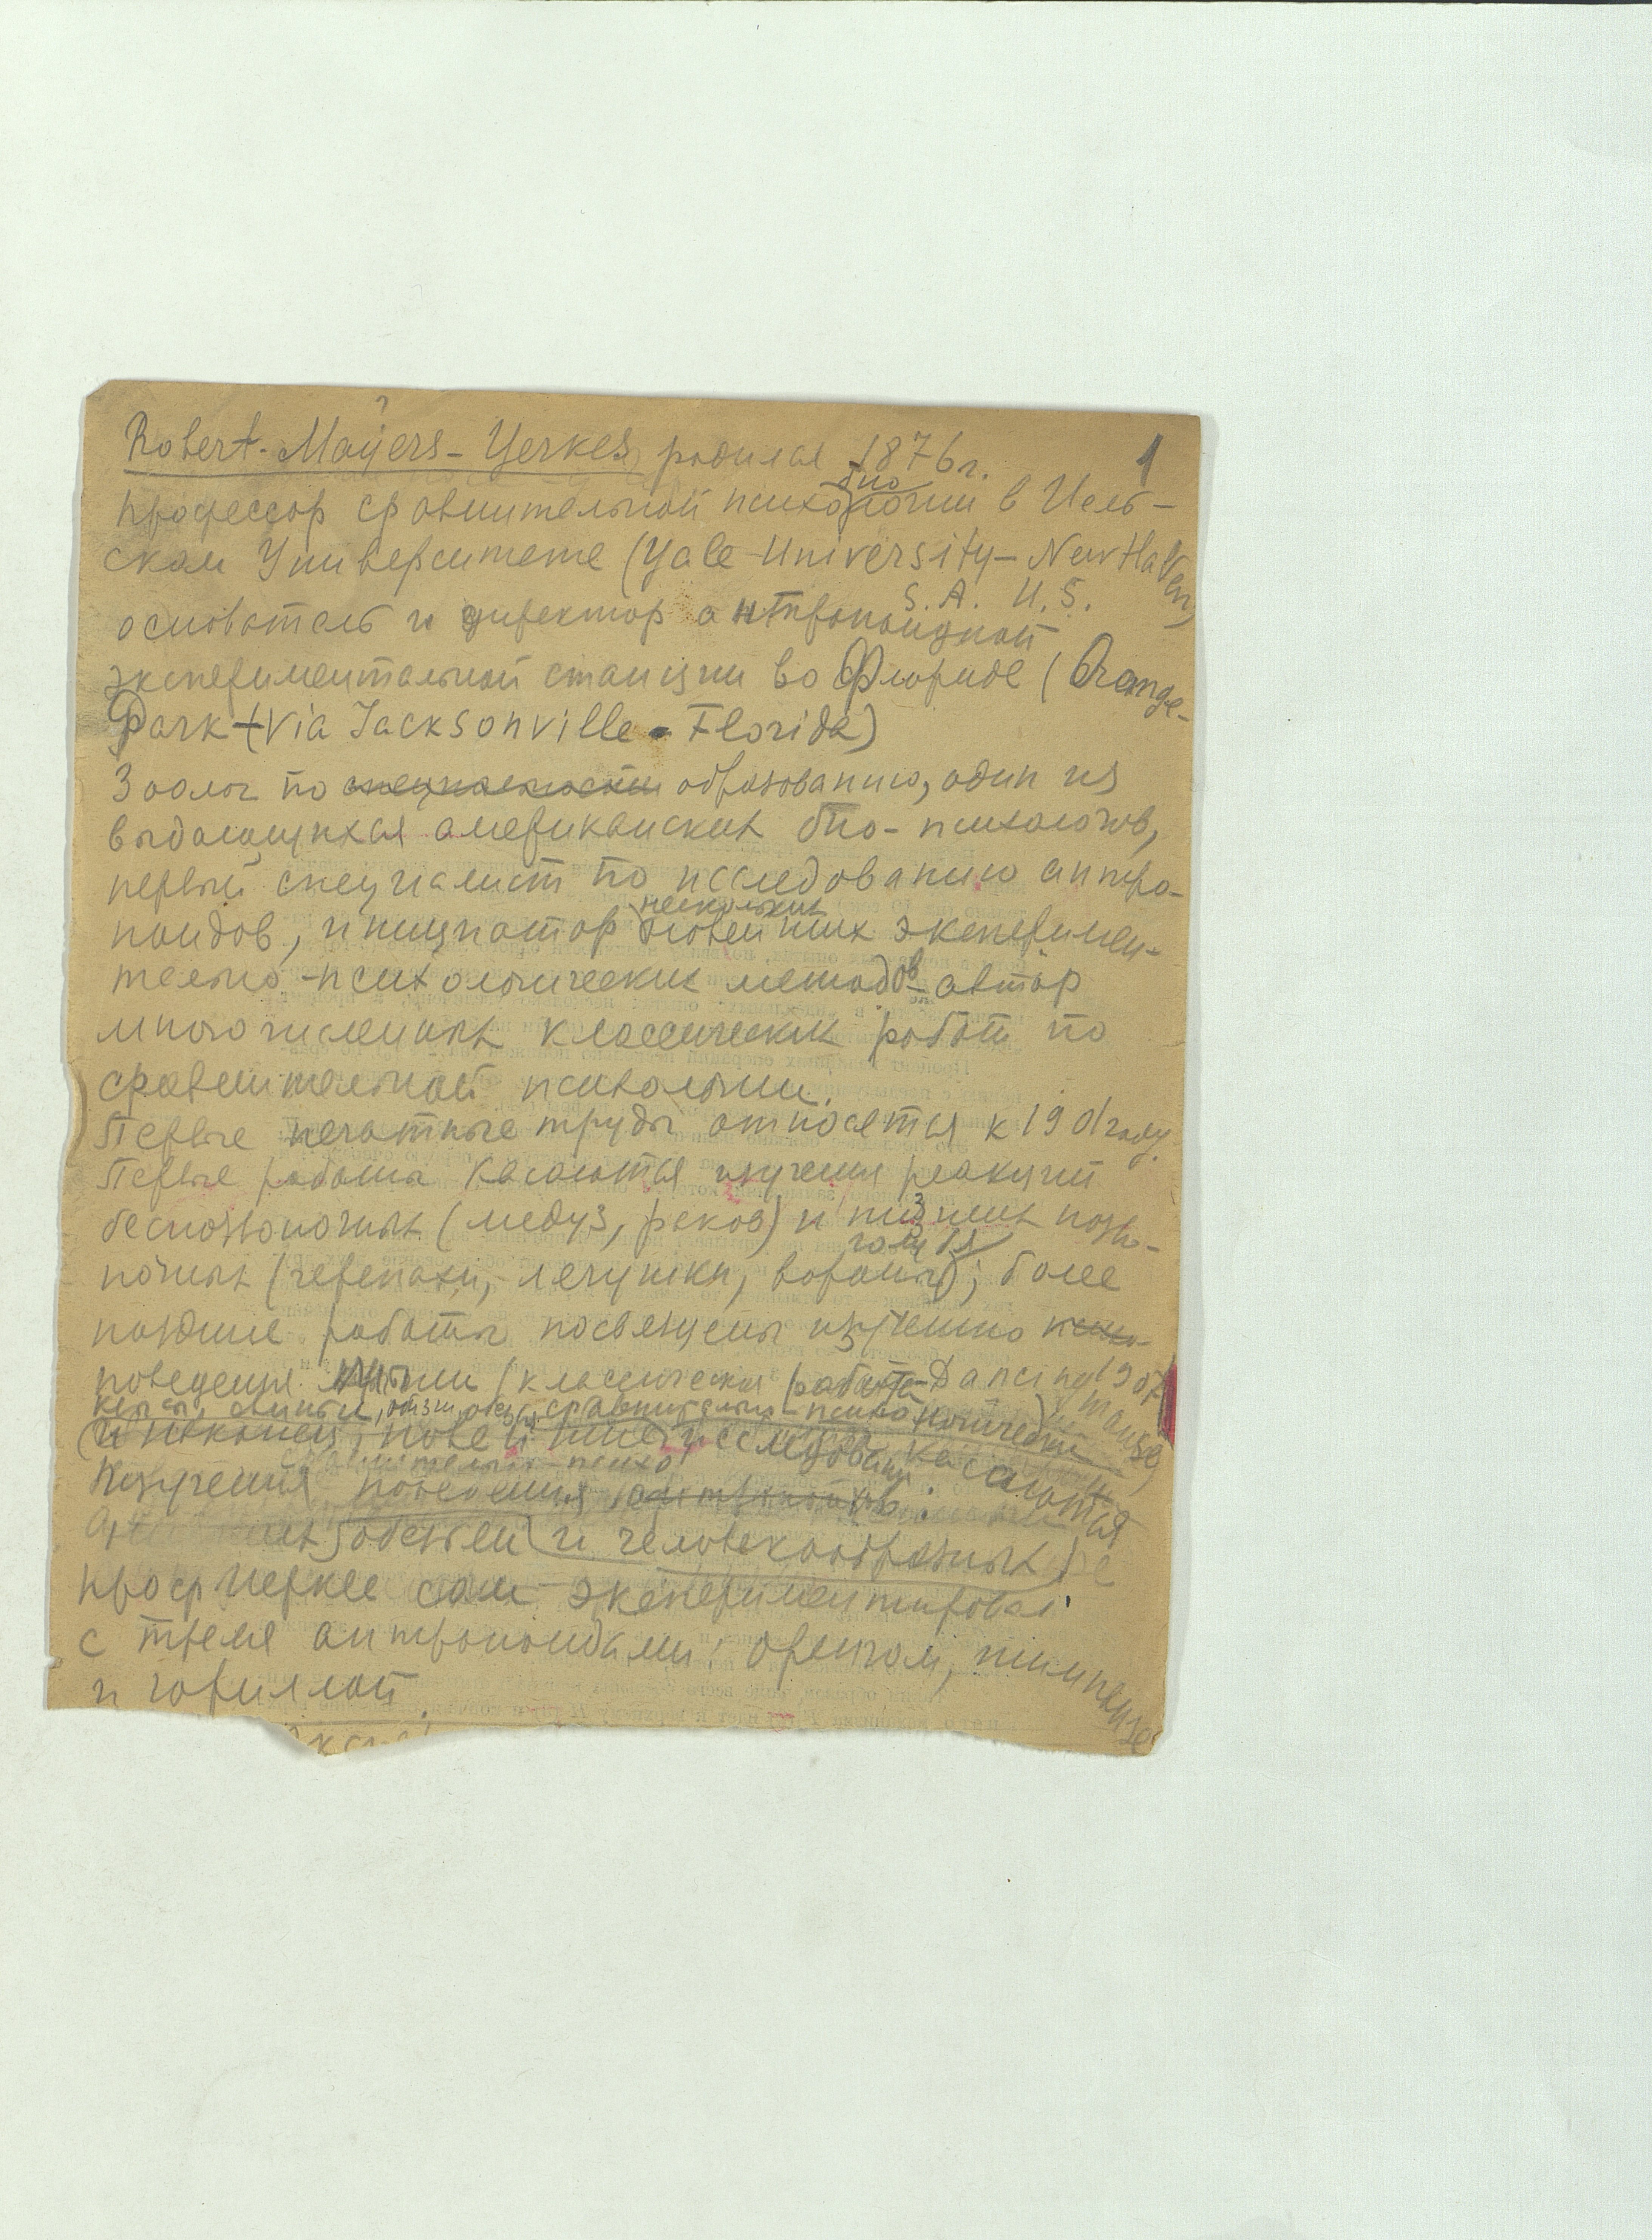 1
Robert-Mayers-Yerkes родился 1876 г.
био
профессор сравнительной психологии в Иель-
ском Университете (Yale University-New Haven,
S. A. U. S.
основатель и директор антропоидной
экспериментальной станции во Флориде (Orange-
Park (via Jacksonville - Florida)
Зоолог по специальности образованию, один из
выдающихся американских био-психологов,
первый специалист по исследованию антро-
нескольких
поидов, инициатор новейших эксперимен-
тально-психологических методов автор
многочисленных классических работ по
сравнительной психологии.
Первые печатные труды относятся к 1901 году.
Первые работы касаются изучения реакций
беспозвоночных (медуз, раков) и низших позво-
ночных (черепахи, лягушки, вороны); более
поздние работы посвящены изучению психо-
поведения мыши (классическая работа Dancing mouse 1907)
сравнительно-психологически
и наконец, новейшие исследования касаются
сравнительно-психо
изучения поведения антропоидов:
обезьян и человекообразных
проф Иеркс сам экспериментировал
с тремя антропоидами: орангом, шимпанзе
и гориллой.